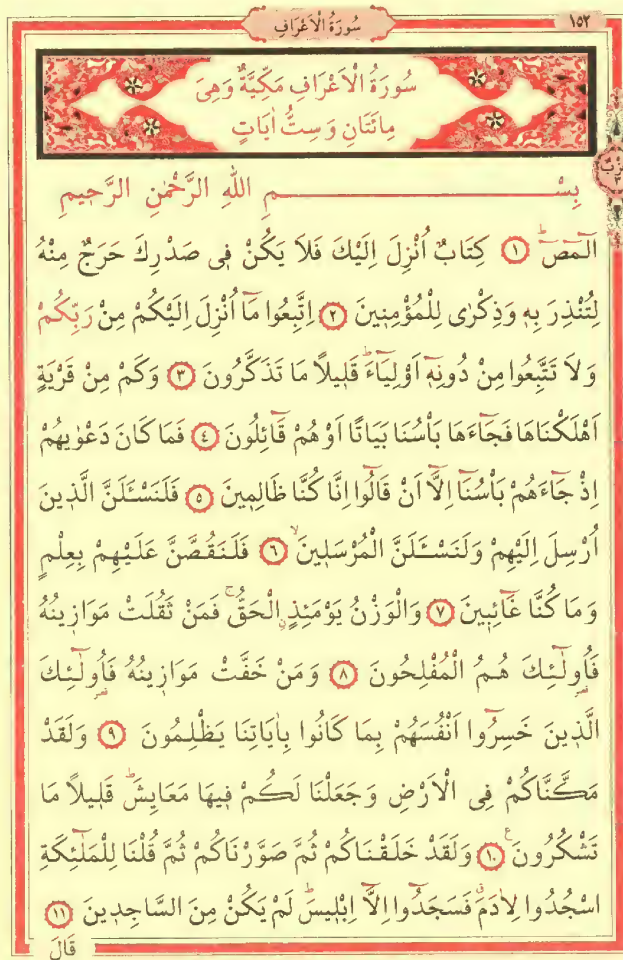 ١٥٢
سُورَةُ الْاَعْرَافِ
سُورَةُ الْاَعْرَافِ مَكِّيَّةٌ وَهِىَ
مِائَتَانِ وَسِتُّ اٰيَاتٍ
حِزْبٌ ٣
بِسْــــــــــــــــمِ اللهِ الرَّحْمٰنِ الرَّحٖيمِ
الٓمٓصٓ ۜ ١ كِتَابٌ اُنْزِلَ اِلَيْكَ فَلَا يَكُنْ فٖى صَدْرِكَ حَرَجٌ مِنْهُ
لِتُنْذِرَ بِهٖ وَذِكْرٰى لِلْمُؤْمِنٖينَ ٢ اِتَّبِعُوا مَٓا اُنْزِلَ اِلَيْكُمْ مِنْ رَبِّكُمْ
وَلَا تَتَّبِعُوا مِنْ دُونِهٖٓ اَوْلِيَٓاءَ ؕ قَلٖيلًا مَا تَذَكَّرُونَ ٣ وَكَمْ مِنْ قَرْيَةٍ
اَهْلَكْنَاهَا فَجَٓاءَهَا بَاْسُنَا بَيَاتًا اَوْ هُمْ قَٓائِلُونَ ٤ فَمَا كَانَ دَعْوٰيهُمْ
اِذْ جَٓاءَهُمْ بَاْسُنَٓا اِلَّٓا اَنْ قَالُٓوا اِنَّا كُنَّا ظَالِمٖينَ ٥ فَلَنَسْـَٔلَنَّ الَّذٖينَ
اُرْسِلَ اِلَيْهِمْ وَلَنَسْـَٔلَنَّ الْمُرْسَلٖينَ ۙ ٦ فَلَنَقُصَّنَّ عَلَيْهِمْ بِعِلْمٍ
وَمَا كُنَّا غَٓائِبٖينَ ٧ وَالْوَزْنُ يَوْمَئِذٍ ࣙالْحَقُّ ۚ فَمَنْ ثَقُلَتْ مَوَازٖينُهُ
فَاُو۬لٰٓئِكَ هُمُ الْمُفْلِحُونَ ٨ وَمَنْ خَفَّتْ مَوَازٖينُهُ فَاُو۬لٰٓئِكَ
الَّذٖينَ خَسِرُٓوا اَنْفُسَهُمْ بِمَا كَانُوا بِاٰيَاتِنَا يَظْلِمُونَ ٩ وَلَقَدْ
مَكَّنَّاكُمْ فِى الْاَرْضِ وَجَعَلْنَا لَكُمْ فٖيهَا مَعَايِشَ ؕ قَلٖيلًا مَا
تَشْكُرُونَ ࣖ ١٠ وَلَقَدْ خَلَقْنَاكُمْ ثُمَّ صَوَّرْنَاكُمْ ثُمَّ قُلْنَا لِلْمَلٰٓئِكَةِ
اسْجُدُوا لِاٰدَمَ ࣗ فَسَجَدُٓوا اِلَّٓا اِبْلٖيسَ ؕ لَمْ يَكُنْ مِنَ السَّاجِدٖينَ ١١
قَالَ